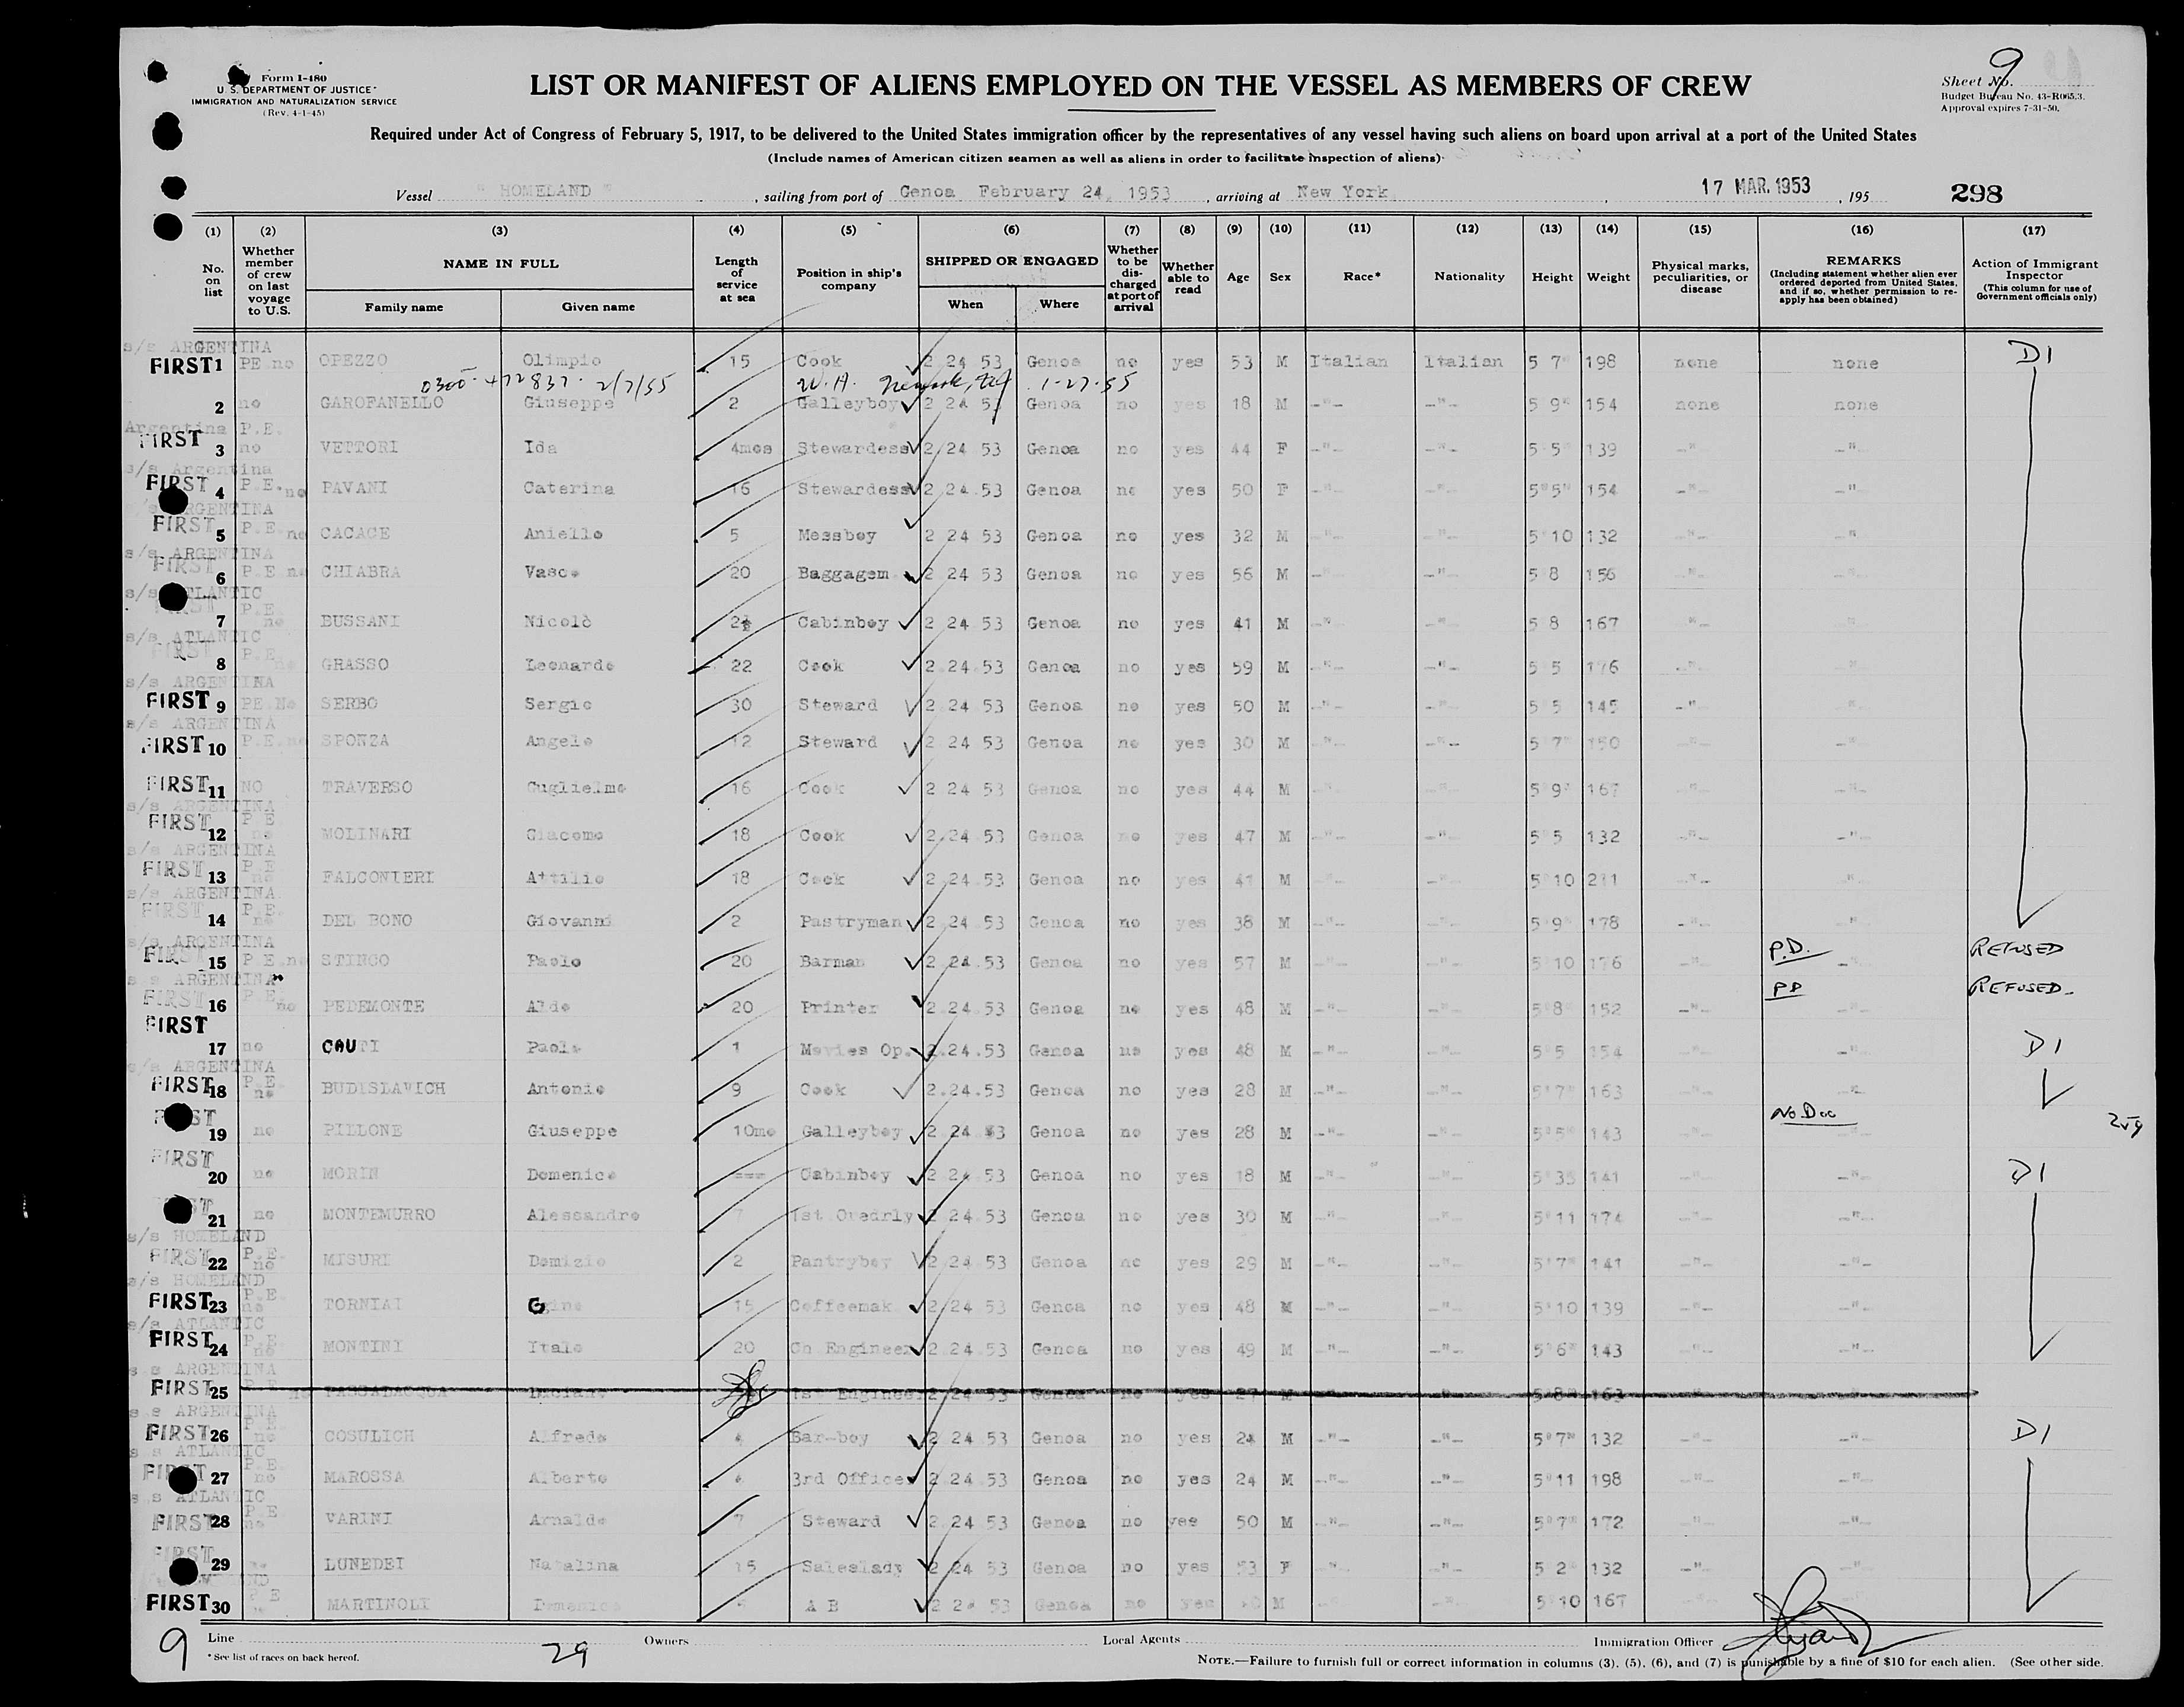 Form I-480
U. S. DEPARTMENT OF JUSTICE
IMMIGRATION AND NATURALIZATION SERVICE
(Rev. 4-1-45)
LIST OR MANIFEST OF ALIENS EMPLOYED ON THE VESSEL AS MEMBERS OF CREW
Sheet No. 9
Budget Bureau No. 43-R065.3.
Approval expires 7-31-50.
Required under Act of Congress of February 5, 1917, to be delivered to the United States immigration officer by the representatives of any vessel having such aliens on board upon arrival at a port of the United States
(Include names of American citizen seamen as well as aliens in order to facilitate inspection of aliens)
Vessel " HOMELAND " , sailing from port of Genoa February 24, 1953 , arriving at New York , 17 MAR. 1953 , 195 298
(1) (2) (3) (4) (5) (6) (7) (8) (9) (10) (11) (12) (13) (14) (15) (16) (17)
No. on list
Whether member of crew on last voyage to U.S.
NAME IN FULL
Family name Given name
Length of service at sea
Position in ship's company
SHIPPED OR ENGAGED
When Where
Whether to be discharged at port of arrival
Whether able to read
Age Sex Race* Nationality Height Weight
Physical marks, peculiarities, or disease
REMARKS
(Including statement whether alien ever ordered deported from United States, and if so, whether permission to reapply has been obtained)
Action of Immigrant Inspector
(This column for use of Government officials only)
s/s ARGENTINA
FIRST 1 PE no OPEZZO Olimpio 15 Cook 2 24 53 Genoa no yes 53 M Italian Italian 5 7" 198 none none D1
0300- 472837- 2/7/55 W.A. 1-27-55
2 no GAROFANELLO Giuseppe 2 Galleyboy 2 24 53 Genoa no yes 18 M -"- -"- 5 9" 154 none none
Argentina P.E.
FIRST 3 no VETTORI Ida 4mos Stewardess 2 24 53 Genoa no yes 44 F -"- -"- 5 5" 139 -"- -"-
s/s Argentina
FIRST 4 P.E. no PAVANI Caterina 16 Stewardess 2 24.53 Genoa no yes 50 F -"- -"- 5"5" 154 -"- -"
ARGENTINA
FIRST 5 P.E. no CACACE Aniello 5 Messboy 2 24 53 Genoa no yes 32 M -"- -"- 5"10 132 -"- -"-
s/s ARGENTINA
FIRST 6 P.E no CHIABRA Vasco 20 Baggagem 2 24 53 Genoa no yes 56 M -"- -"- 5 8 156 -"- -"-
s/s ATLANTIC
7 P.E. no BUSSANI Nicolò Cabinboy 2 24 53 Genoa no yes 41 M -"- -"- 5 8 167 -"- -"-
s/s ATLANTIC
FIRST 8 P.E. no GRASSO Leonardo 22 Cook 2.24.53 Genoa no yes 59 M -"- -"- 5 5 176 -"- -"-
s/s ARGENTINA
FIRST 9 PE No SERBO Sergio 30 Steward 2 24 53 Genoa no yes 50 M -"- -"- 5 5 145 -"- -"-
s/s ARGENTINA
FIRST 10 P.E. no SPONZA Angelo 12 Steward 2 24 53 Genoa no yes 30 M -"- -"- 5"7" 150 -"- -"-
FIRST 11 NO TRAVERSO Guglielmo 16 Cook 2 24 53 Genoa no yes 44 M -"- -"- 5"9" 167 -"- -"-
s/s ARGENTINA
FIRST 12 P E no MOLINARI Giacomo 18 Cook 2.24 53 Genoa no yes 47 M -"- -"- 5"5 132 -"- -"-
s/s ARGENTINA
FIRST 13 P E no FALCONIERI Attilio 18 Cook 2.24.53 Genoa no yes 47 M -"- -"- 5"10 211 -"- -"-
s/s ARGENTINA
FIRST 14 P.E. no DEL BONO Giovanni 2 Pastryman 2 24 53 Genoa no yes 38 M -"- -"- 5"9" 178 -"- -"-
s/s ARGENTINA
FIRST 15 P.E.no STINGO Paolo 20 Barman 2 24.53 Genoa no yes 57 M -"- -"- 5"10 176 -"- P.D. REFUSED
s s ARGENTINA
FIRST 16 P.E. no PEDEMONTE Aldo 20 Printer 2.24.53 Genoa no yes 48 M -"- -"- 5"8" 152 -"- PD REFUSED-
FIRST
17 no CAUTI Paolo 1 Movies Op. 2.24.53 Genoa no yes 48 M -"- -"- 5"5 154 -"- -"- D1
s/s ARGENTINA
FIRST 18 P.E. no BUDISLAVICH Antonio 9 Cook 2.24.53 Genoa no yes 28 M -"- -"- 5"7" 163 -"- -"-
FIRST 19 no PILLONE Giuseppe 10mo Galleyboy 2 24 53 Genoa no yes 28 M -"- -"- 5"5" 143 -"- No Doc
FIRST 20 no MORIN Domenico === Cabinboy 2 24 53 Genoa no yes 18 M -"- -"- 5"35 141 -"- -"- D1
21 no MONTEMURRO Alessandro 7 1st Oredrly 2 24.53 Genoa no yes 30 M -"- -"- 5"11 174 -"- -"-
s/s HOMELAND
FIRST 22 P.E. no MISURI Domizio 2 Pantryboy 2 24 53 Genoa no yes 29 M -"- -"- 5"7" 141 -"- -"-
s/s HOMELAND
FIRST 23 P.E. no TORNIAI Gino 15 Coffeemak 2/24 53 Genoa no yes 48 M -"- -"- 5"10 139 -"- -"-
s/s ATLANTIC
FIRST 24 P.E. no MONTINI Italo 20 Ch Engineer 2 24.53 Genoa no yes 49 M -"- -"- 5"6" 143 -"- -"-
s s ARGENTINA
FIRST 25 P.E. no 1st Engineer 2 24 53 Genoa no yes 27 M 5"8" 163
s s ARGENTINA
FIRST 26 P.E. no COSULICH Alfredo 4 Bar-boy 2 24 53 Genoa no yes 24 M -"- -"- 5"7" 132 -"- -"- D1
s s ATLANTIC
FIRST 27 P.E. no MAROSSA Alberto 3rd Office 2 24 53 Genoa no yes 24 M -"- -"- 5"11 198 -"- -"-
s s ATLANTIC
FIRST 28 P E no VARINI Arnaldo 7 Steward 2.24 53 Genoa no yes 50 M -"- -"- 5"7" 172 -"- -"-
FIRST 29 LUNEDEI Natalina 15 Saleslady 2 24 53 Genoa no yes 53 F -"- -"- 5 2" 132 -"- -"-
FIRST 30 P E MARTINOLI Domenico A B 2 24 53 Genoa no yes M 5"10 167
9 Line 29 Owners Local Agents Immigration Officer
* See list of races on back hereof.
NOTE.—Failure to furnish full or correct information in columns (3), (5), (6), and (7) is punishable by a fine of $10 for each alien. (See other side.